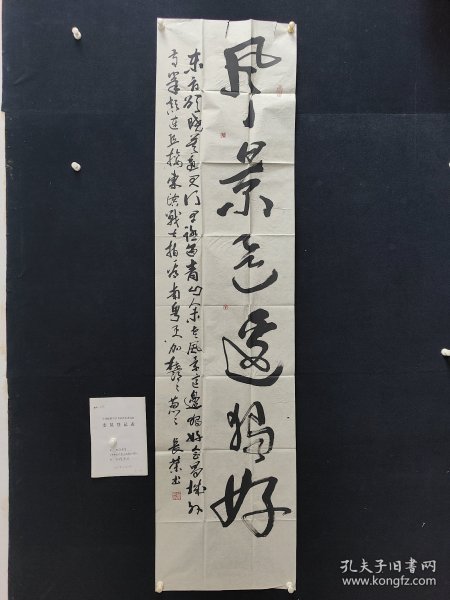 风景这边独好
东方欲晓莫道君行早踏遍青山人未老风景这边独好会昌城外
高峰颠连直接東溟战士指看南粤更加郁々葱々 长荣书
孔夫子旧书网
www.kongfz.com